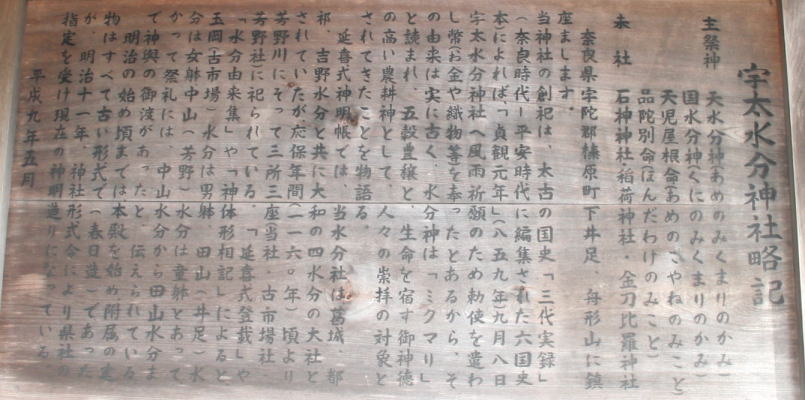 宇太水分神社略記
主祭神　天水分神(あめのみくまりのかみ)
国水分神(くにのみくまりのかみ)
天児屋根命(あめのこやねのみこと)
品陀別命(ほんだわけのみこと)
末社　石神神社・稲荷神社・金刀比羅神社
奈良県宇陀郡榛原町下井足、舟形山に鎮
座まします。
当神社の創祀は、太古の国史「三代実録」
(奈良時代-平安時代に編集された六国史
本によれば、「貞観元年」(八五九年九月八日
宇太水分神社へ風雨祈願のため勅使を遣わ
し幣(お金や織物等を奉ったとあるから、そ
の由来は実に古く、水分神は「ミクマリ」
と読まれ、五穀豊穣と、生命を宿す御神徳
の高い農耕神として、人々の崇拝の対象と
されてきたことを物語る。
延喜式神明帳では、当水分社は葛城、都
祁、吉野水分と共に大和の四水分の大社と
されていたが応保年間(一一六〇年)頃より
芳野川にそって三所三座(当社・古市場社・
芳野社に祀られている。「延喜式登載しや
「水分由来集」や「神体形相記」によると
玉岡(古市場)水分は男躰、田山(井足)水
分は女躰中山(芳野)水分は童躰とあって
かって祭礼には、中山水分から田山水分ま
で神輿の御渡があったと、伝えられている
明治の始め頃までは本殿を始め附属の建
物はすべて古い形式で(春日造)であった
が、明治十一年、神社形式令により県社の
指定を受け現在の神明造りになっている。
平成九年五月